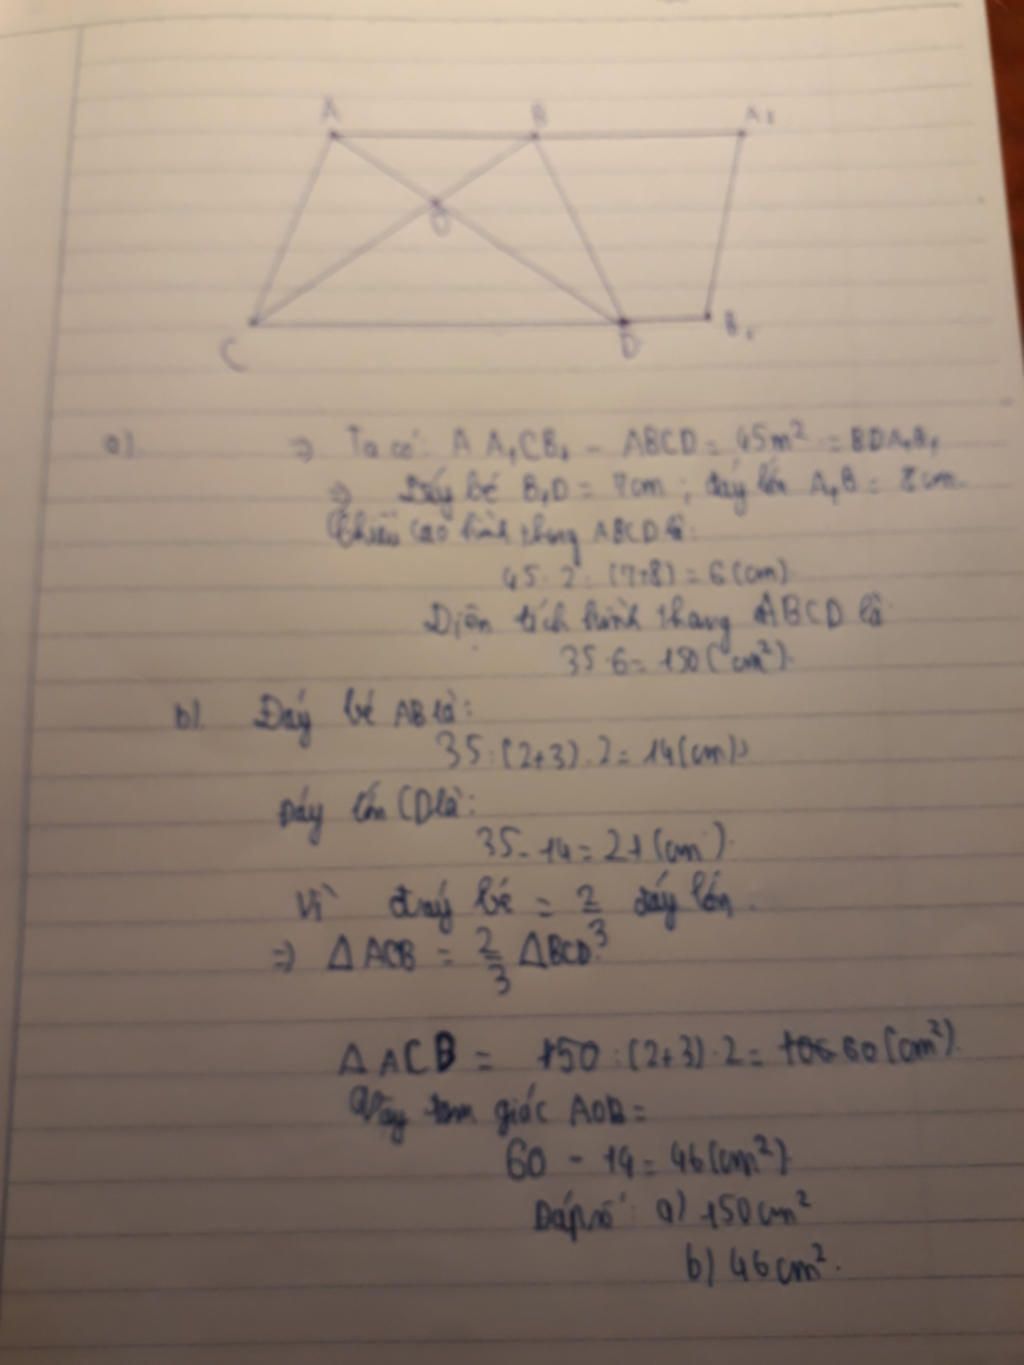 A B A₁
O
C D B₁
a). => Ta có: A A₁CB₁ - ABCD = 45m² = BDA₁B₁
=> Đáy bé B₁D = 7cm; đáy lớn A₁B = 8cm.
Chiều cao hình thang ABCD là:
45 . 2 : (7+8) = 6 (cm)
Diện tích hình thang ABCD là
35 . 6 = 150 (cm²).
b). Đáy bé AB là:
35 : (2+3) . 2 = 14 (cm)
Đáy lớn CD là:
35 - 14 = 21 (cm).
Vì đáy bé = 2/3 đáy lớn.
=> Δ ACB = 2/3 Δ BCD.
Δ ACB = 150 : (2+3) . 2 = 60 (cm²).
Vậy tam giác AOB =
60 - 14 = 46 (cm²)
Đáp số: a) 150cm²
b) 46 cm².